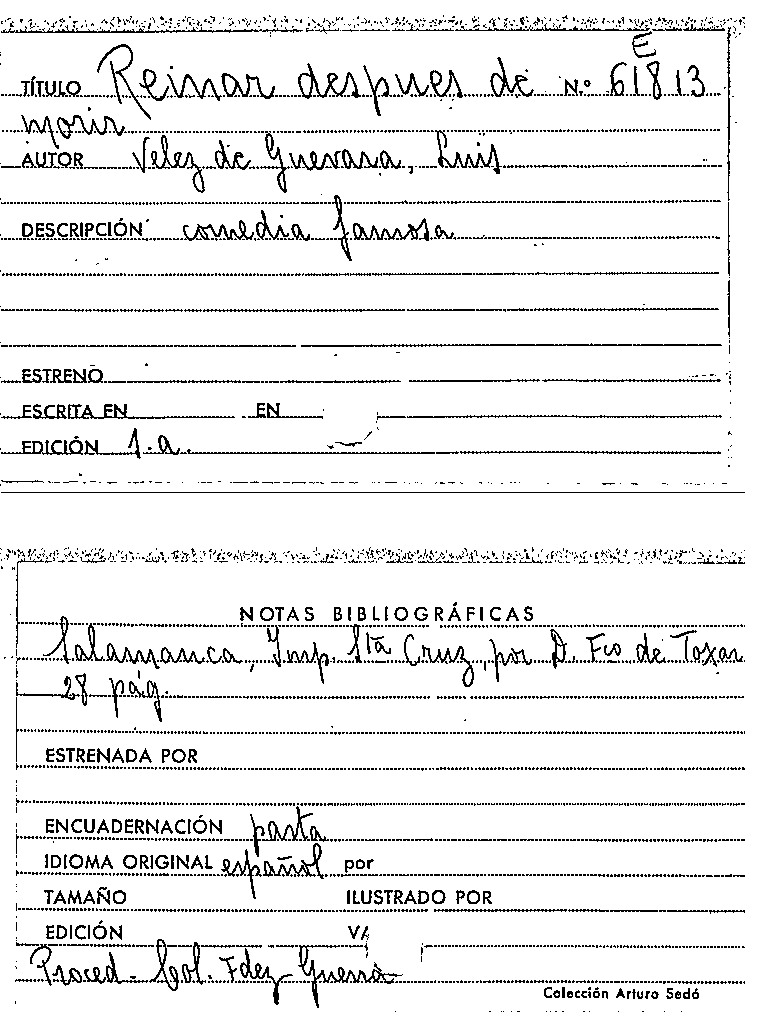 E
TÍTULO Reinar despues de N.º 61813
morir
AUTOR Velez de Guevara, Luis
DESCRIPCIÓN comedia famosa
ESTRENO
ESCRITA EN EN
EDICIÓN 1.a.
NOTAS BIBLIOGRÁFICAS
Salamanca, Imp. Sta Cruz, por D. Fco de Toxar
28 pág.
ESTRENADA POR
ENCUADERNACIÓN pasta
IDIOMA ORIGINAL español por
TAMAÑO ILUSTRADO POR
EDICIÓN
Proced. Col. Fdez-Guerra
Colección Arturo Sedó